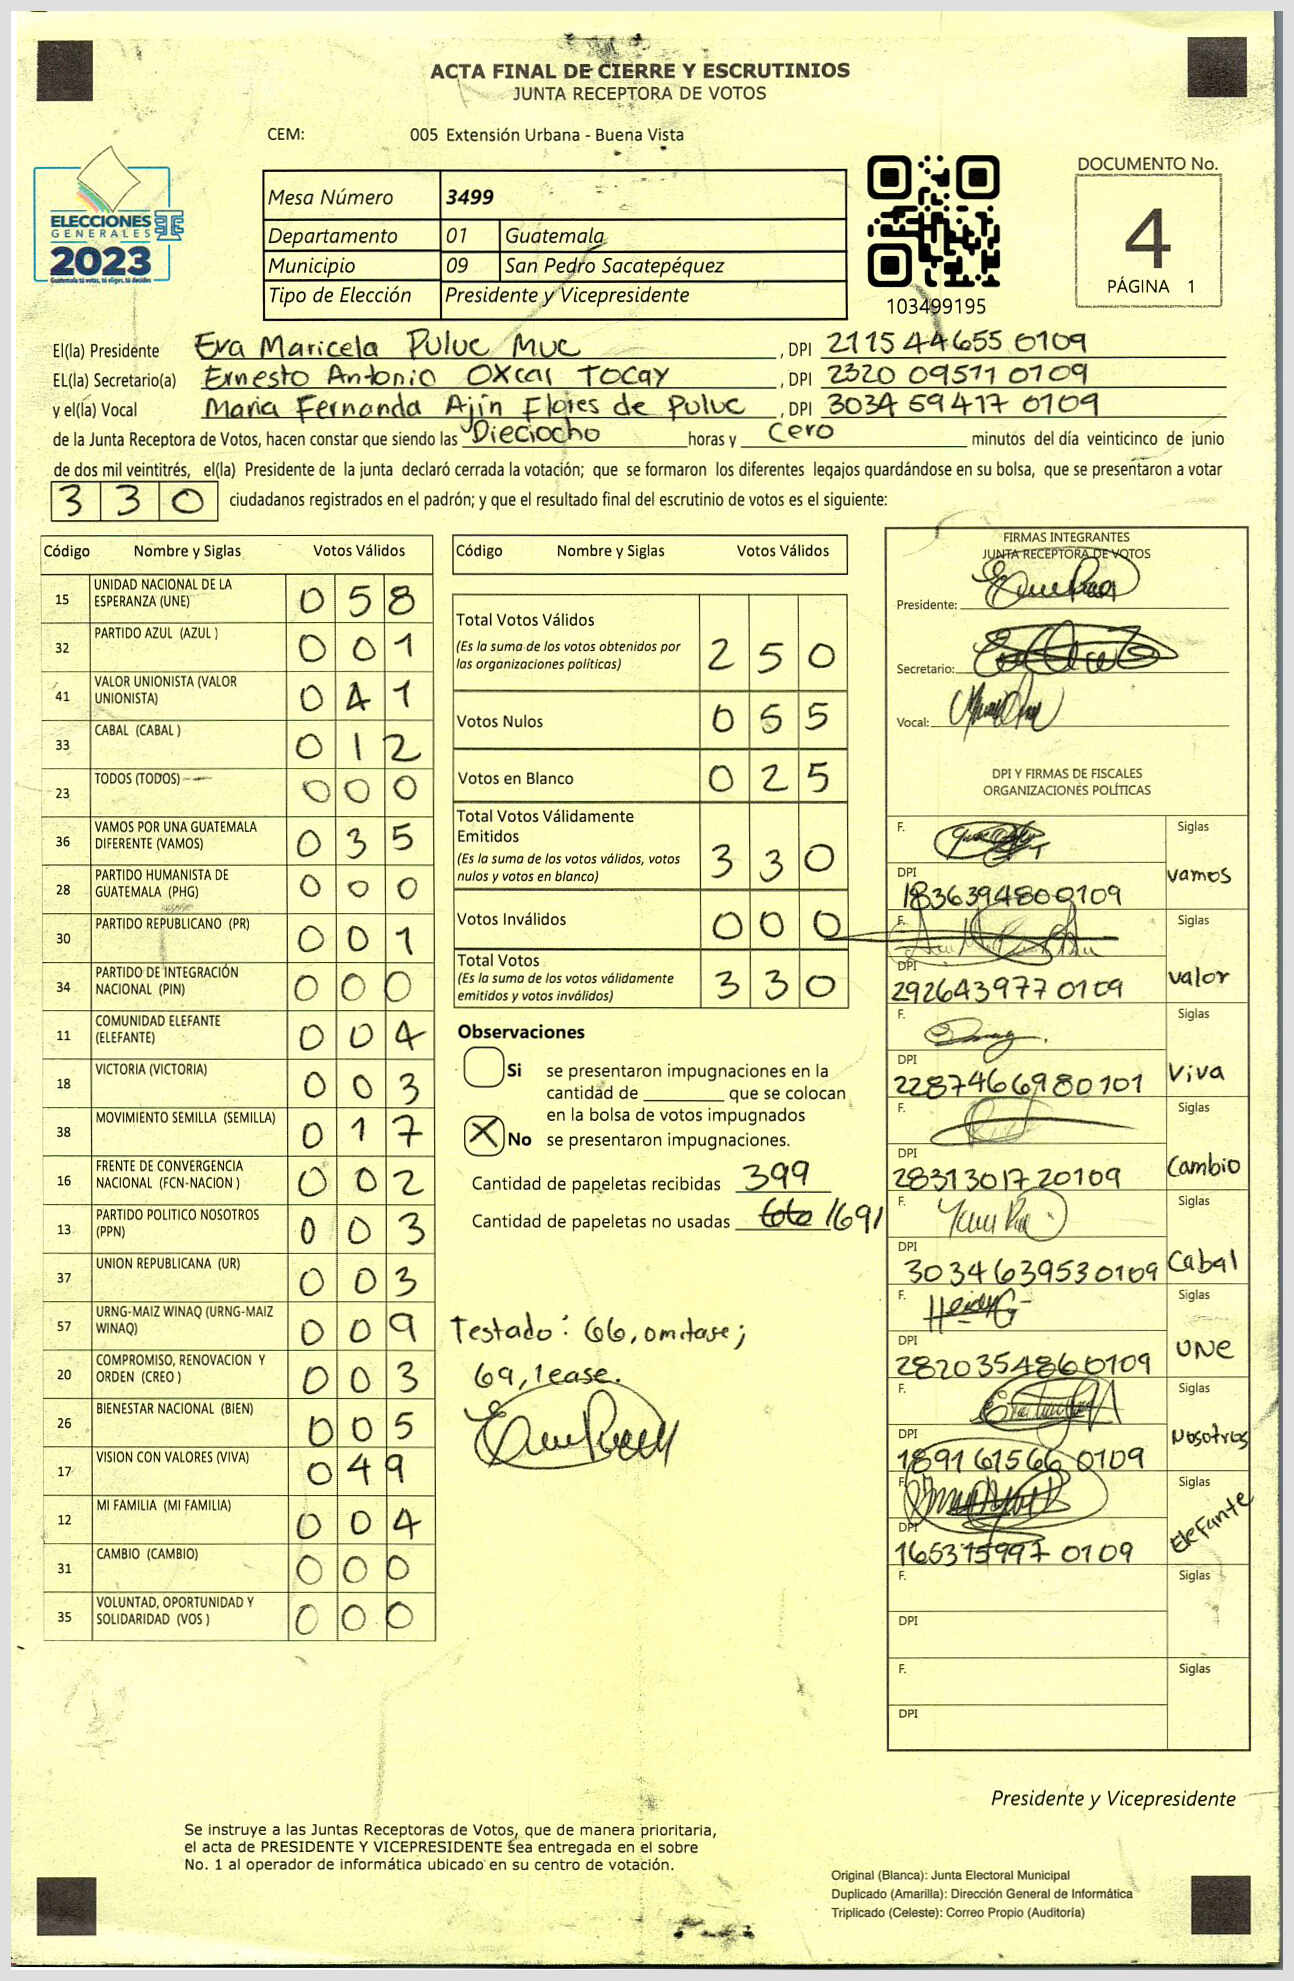 ACTA FINAL DE CIERRE Y ESCRUTINIOS
JUNTA RECEPTORA DE VOTOS
CEM: 005 Extensión Urbana - Buena Vista
ELECCIONES
GENERALES
2023
Guatemala tú votas, tú eliges, tú decides
Mesa Número 3499
Departamento 01 Guatemala
Municipio 09 San Pedro Sacatepéquez
Tipo de Elección Presidente y Vicepresidente
103499195
DOCUMENTO No.
4
PÁGINA 1
El(la) Presidente Eva Maricela Puluc Muc , DPI 2115 44655 0109
EL(la) Secretario(a) Ernesto Antonio Oxcal Tocay , DPI 2320 09511 0109
y el(la) Vocal Maria Fernanda Ajín Flores de Puluc , DPI 3034 59417 0109
de la Junta Receptora de Votos, hacen constar que siendo las Dieciocho horas y Cero minutos del día veinticinco de junio
de dos mil veintitrés, el(la) Presidente de la junta declaró cerrada la votación; que se formaron los diferentes legajos guardándose en su bolsa, que se presentaron a votar
330 ciudadanos registrados en el padrón; y que el resultado final del escrutinio de votos es el siguiente:
Código Nombre y Siglas Votos Válidos
15 UNIDAD NACIONAL DE LA ESPERANZA (UNE) 058
32 PARTIDO AZUL (AZUL ) 001
41 VALOR UNIONISTA (VALOR UNIONISTA) 041
33 CABAL (CABAL ) 012
23 TODOS (TODOS) 000
36 VAMOS POR UNA GUATEMALA DIFERENTE (VAMOS) 035
28 PARTIDO HUMANISTA DE GUATEMALA (PHG) 000
30 PARTIDO REPUBLICANO (PR) 001
34 PARTIDO DE INTEGRACIÓN NACIONAL (PIN) 000
11 COMUNIDAD ELEFANTE (ELEFANTE) 004
18 VICTORIA (VICTORIA) 003
38 MOVIMIENTO SEMILLA (SEMILLA) 017
16 FRENTE DE CONVERGENCIA NACIONAL (FCN-NACION ) 002
13 PARTIDO POLITICO NOSOTROS (PPN) 003
37 UNION REPUBLICANA (UR) 003
57 URNG-MAIZ WINAQ (URNG-MAIZ WINAQ) 009
20 COMPROMISO, RENOVACION Y ORDEN (CREO ) 003
26 BIENESTAR NACIONAL (BIEN) 005
17 VISION CON VALORES (VIVA) 049
12 MI FAMILIA (MI FAMILIA) 004
31 CAMBIO (CAMBIO) 000
35 VOLUNTAD, OPORTUNIDAD Y SOLIDARIDAD (VOS ) 000
Código Nombre y Siglas Votos Válidos
Total Votos Válidos
(Es la suma de los votos obtenidos por
las organizaciones políticas) 250
Votos Nulos 055
Votos en Blanco 025
Total Votos Válidamente
Emitidos
(Es la suma de los votos válidos, votos
nulos y votos en blanco) 330
Votos Inválidos 000
Total Votos
(Es la suma de los votos válidamente
emitidos y votos inválidos) 330
Observaciones
Si se presentaron impugnaciones en la
cantidad de ________ que se colocan
en la bolsa de votos impugnados
X No se presentaron impugnaciones.
Cantidad de papeletas recibidas 399
Cantidad de papeletas no usadas /69/
Testado: 66, omitase;
69, lease.
FIRMAS INTEGRANTES
JUNTA RECEPTORA DE VOTOS
Presidente:
Secretario:
Vocal:
DPI Y FIRMAS DE FISCALES
ORGANIZACIONES POLÍTICAS
F. Siglas
DPI 1836394800109 vamos
F. Siglas
DPI 292643977 0109 valor
F. Siglas
DPI 2287466980101 Viva
F. Siglas
DPI 2831301720109 Cambio
F. Siglas
DPI 3034639530109 Cabal
F. Heidy G Siglas
DPI 2820354860109 UNE
F. Siglas
DPI 189161566 0109 Nosotros
F. Siglas
DPI 165315997 0109 Elefante
F. Siglas
DPI
F. Siglas
DPI
Presidente y Vicepresidente
Se instruye a las Juntas Receptoras de Votos, que de manera prioritaria,
el acta de PRESIDENTE Y VICEPRESIDENTE sea entregada en el sobre
No. 1 al operador de informática ubicado en su centro de votación.
Original (Blanca): Junta Electoral Municipal
Duplicado (Amarilla): Dirección General de Informática
Triplicado (Celeste): Correo Propio (Auditoría)